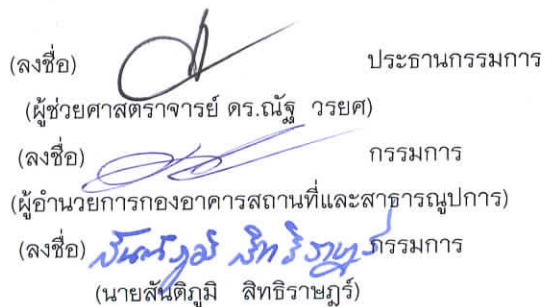 (ลงชื่อ) ประธานกรรมการ
(ผู้ช่วยศาสตราจารย์ ดร.ณัฐ วรยศ)
(ลงชื่อ) กรรมการ
(ผู้อำนวยการกองอาคารสถานที่และสาธารณูปการ)
(ลงชื่อ) สันติภูมิ สิทธิราษฎร์ กรรมการ
(นายสันติภูมิ สิทธิราษฎร์)